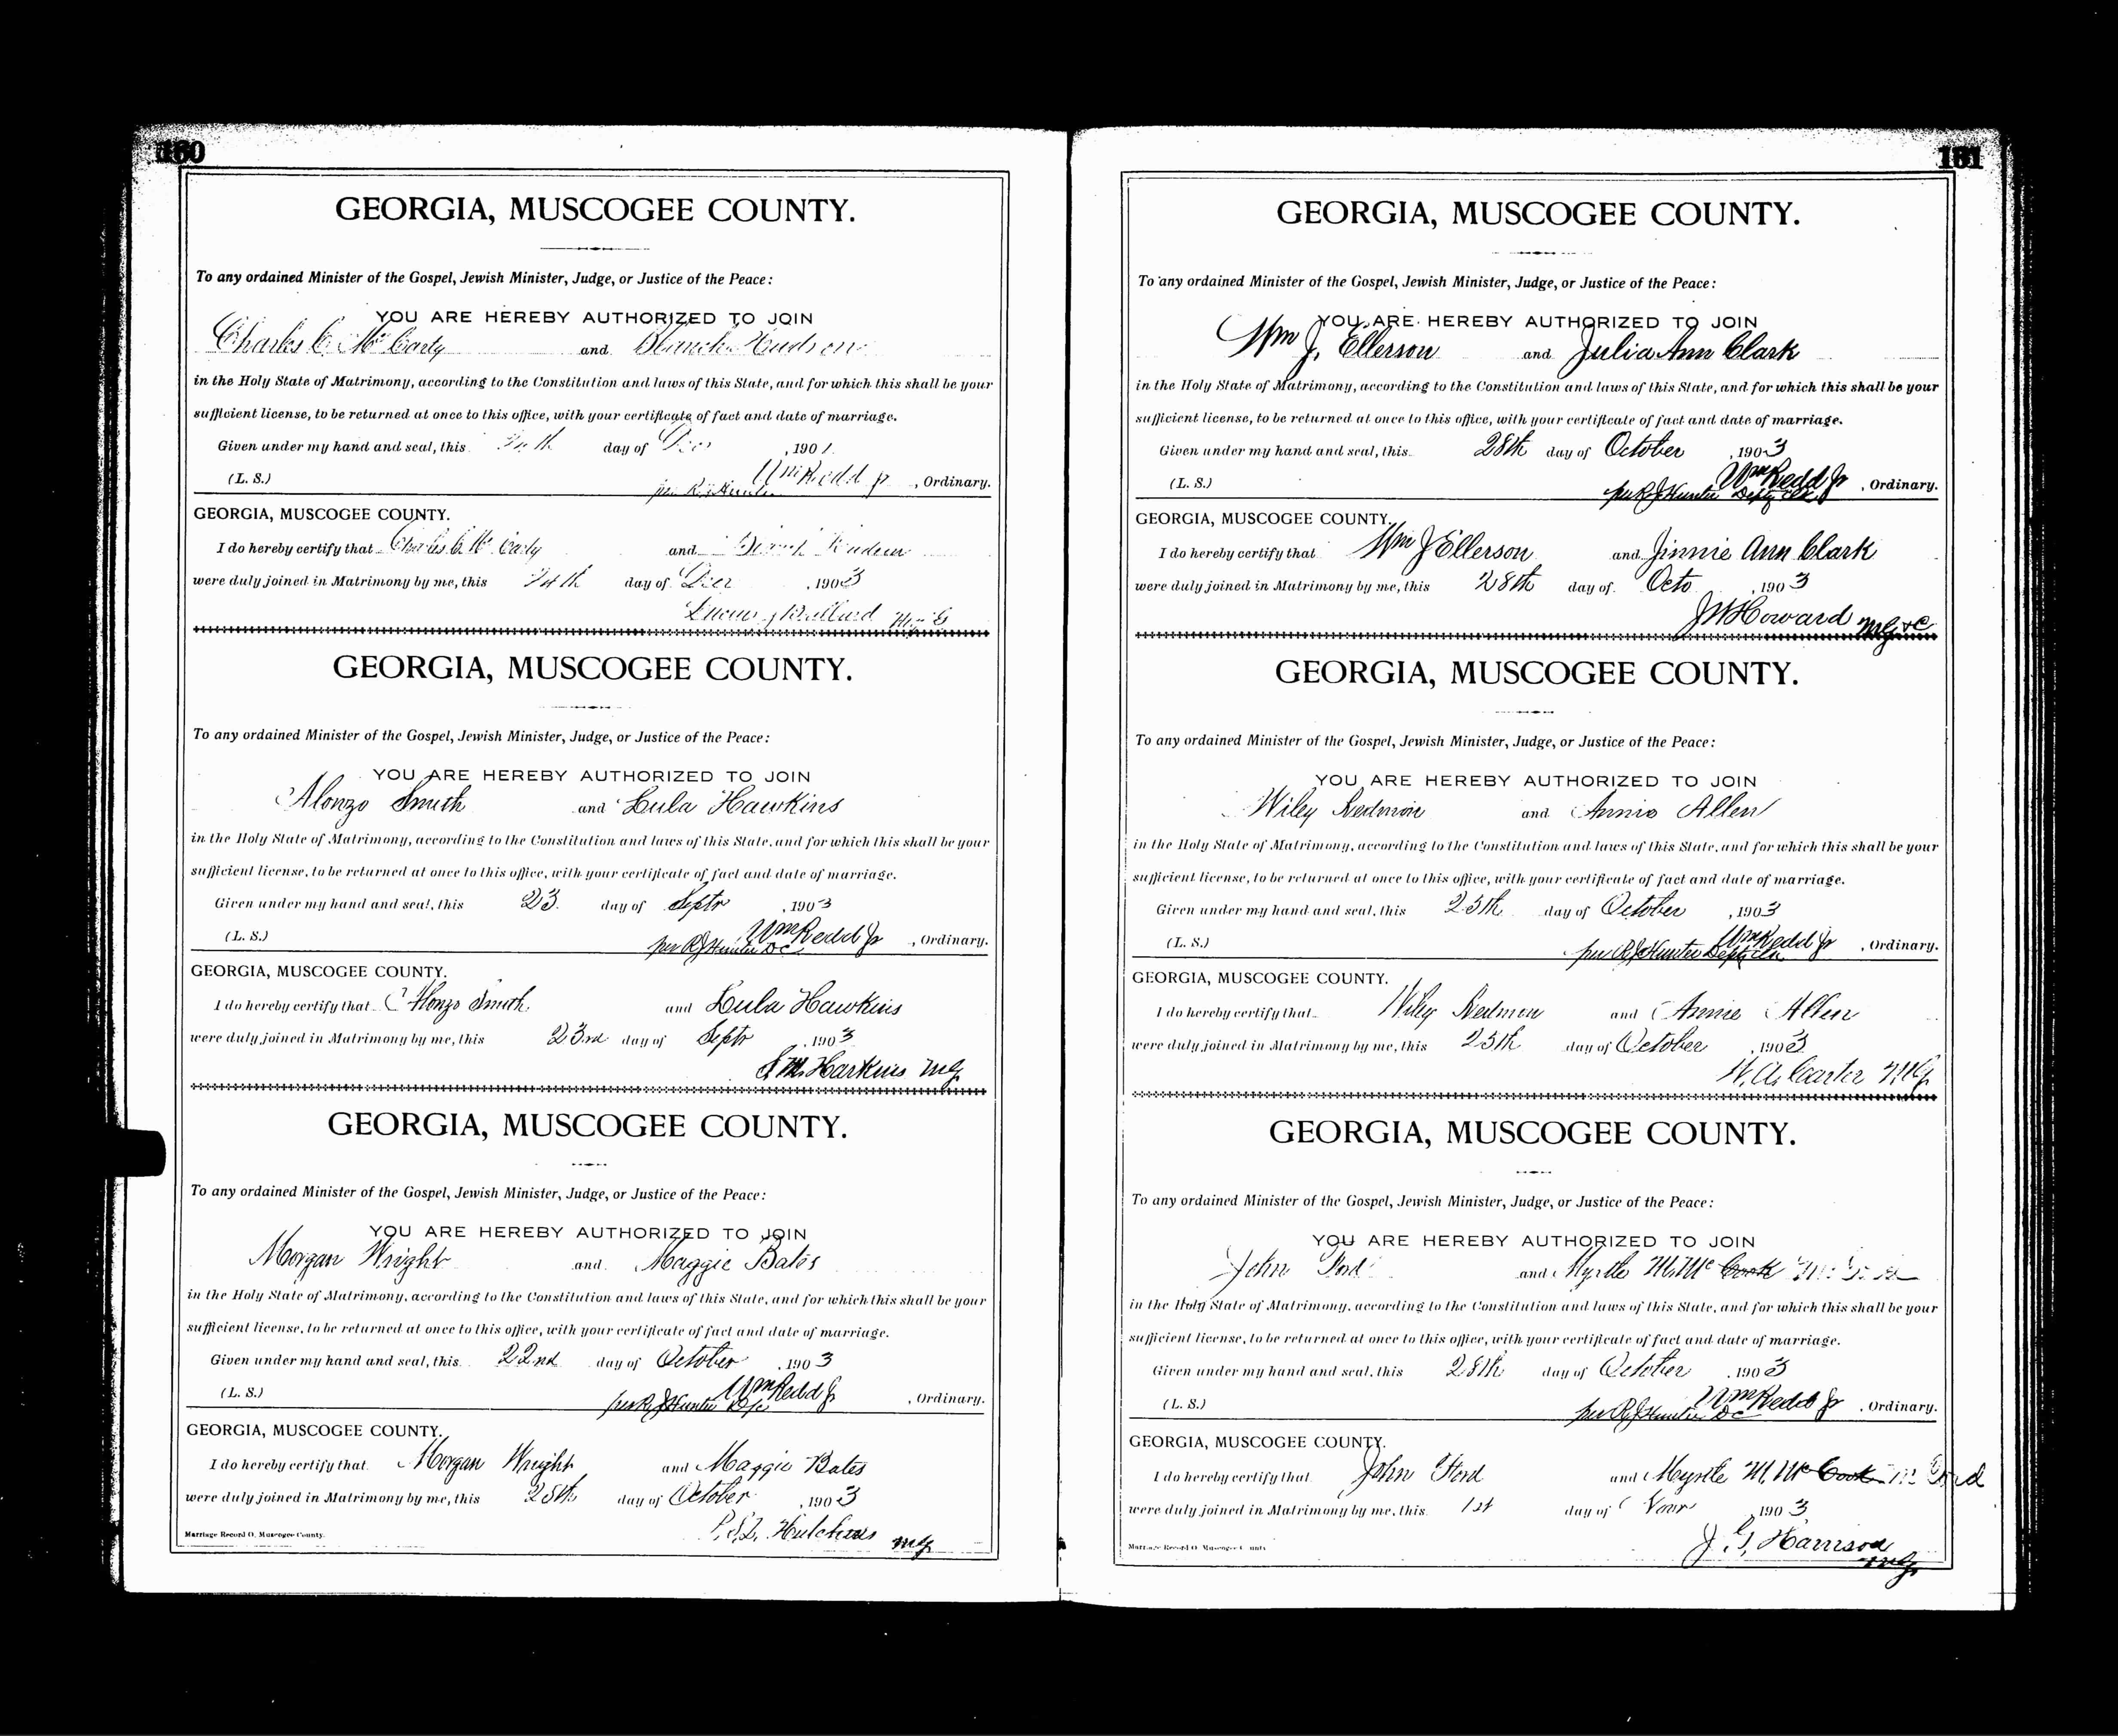 180
GEORGIA, MUSCOGEE COUNTY.
To any ordained Minister of the Gospel, Jewish Minister, Judge, or Justice of the Peace:
YOU ARE HEREBY AUTHORIZED TO JOIN
Charles C. McCarty and Blanch Hudson
in the Holy State of Matrimony, according to the Constitution and laws of this State, and for which this shall be your
sufficient license, to be returned at once to this office, with your certificate of fact and date of marriage.
Given under my hand and seal, this day of Decr , 190
(L. S.) Wm Redd Jr , Ordinary.
per R. J. Hunter
GEORGIA, MUSCOGEE COUNTY.
I do hereby certify that Charles C. McCarty and
were duly joined in Matrimony by me, this 24th day of Decr , 1903
GEORGIA, MUSCOGEE COUNTY.
To any ordained Minister of the Gospel, Jewish Minister, Judge, or Justice of the Peace:
YOU ARE HEREBY AUTHORIZED TO JOIN
Alonzo Smith and Lula Hawkins
in the Holy State of Matrimony, according to the Constitution and laws of this State, and for which this shall be your
sufficient license, to be returned at once to this office, with your certificate of fact and date of marriage.
Given under my hand and seal, this 23 day of Septr , 1903
(L. S.) Wm Redd Jr , Ordinary.
per R J Hunter DC
GEORGIA, MUSCOGEE COUNTY.
I do hereby certify that Alonzo Smith and Lula Hawkins
were duly joined in Matrimony by me, this 23rd day of Septr , 1903
S. M. Harkins MG
GEORGIA, MUSCOGEE COUNTY.
To any ordained Minister of the Gospel, Jewish Minister, Judge, or Justice of the Peace:
YOU ARE HEREBY AUTHORIZED TO JOIN
Morgan Wright and Maggie Bates
in the Holy State of Matrimony, according to the Constitution and laws of this State, and for which this shall be your
sufficient license, to be returned at once to this office, with your certificate of fact and date of marriage.
Given under my hand and seal, this 22nd day of October , 1903
(L. S.) Wm Redd Jr , Ordinary.
per R J Hunter
GEORGIA, MUSCOGEE COUNTY.
I do hereby certify that Morgan Wright and Maggie Bates
were duly joined in Matrimony by me, this 28th day of October , 1903
Hutchins MG
Marriage Record O, Muscogee County.
181
GEORGIA, MUSCOGEE COUNTY.
To any ordained Minister of the Gospel, Jewish Minister, Judge, or Justice of the Peace:
YOU ARE HEREBY AUTHORIZED TO JOIN
Wm J. Ellerson and Julia Ann Clark
in the Holy State of Matrimony, according to the Constitution and laws of this State, and for which this shall be your
sufficient license, to be returned at once to this office, with your certificate of fact and date of marriage.
Given under my hand and seal, this 28th day of October , 1903
(L. S.) Wm Redd Jr , Ordinary.
per R J Hunter Depty Clk
GEORGIA, MUSCOGEE COUNTY.
I do hereby certify that Wm J Ellerson and Jinnie Ann Clark
were duly joined in Matrimony by me, this 28th day of Octo , 1903
J W Howard
GEORGIA, MUSCOGEE COUNTY.
To any ordained Minister of the Gospel, Jewish Minister, Judge, or Justice of the Peace:
YOU ARE HEREBY AUTHORIZED TO JOIN
Wiley Redmon and Annie Allen
in the Holy State of Matrimony, according to the Constitution and laws of this State, and for which this shall be your
sufficient license, to be returned at once to this office, with your certificate of fact and date of marriage.
Given under my hand and seal, this 25th day of October , 1903
(L. S.) Wm Redd Jr , Ordinary.
per R J Hunter Depty Clk
GEORGIA, MUSCOGEE COUNTY.
I do hereby certify that Wiley Redmon and Annie Allen
were duly joined in Matrimony by me, this 25th day of October , 1903
W. A. Carter MG
GEORGIA, MUSCOGEE COUNTY.
To any ordained Minister of the Gospel, Jewish Minister, Judge, or Justice of the Peace:
YOU ARE HEREBY AUTHORIZED TO JOIN
John Ford and Myrtle M. Mc Cook
in the Holy State of Matrimony, according to the Constitution and laws of this State, and for which this shall be your
sufficient license, to be returned at once to this office, with your certificate of fact and date of marriage.
Given under my hand and seal, this 28th day of October , 1903
(L. S.) Wm Redd Jr , Ordinary.
per R J Hunter DC
GEORGIA, MUSCOGEE COUNTY.
I do hereby certify that John Ford and Myrtle M. Mc Cook
were duly joined in Matrimony by me, this 1st day of Novr , 1903
J. G. Harrison
MG
Marriage Record O, Muscogee County